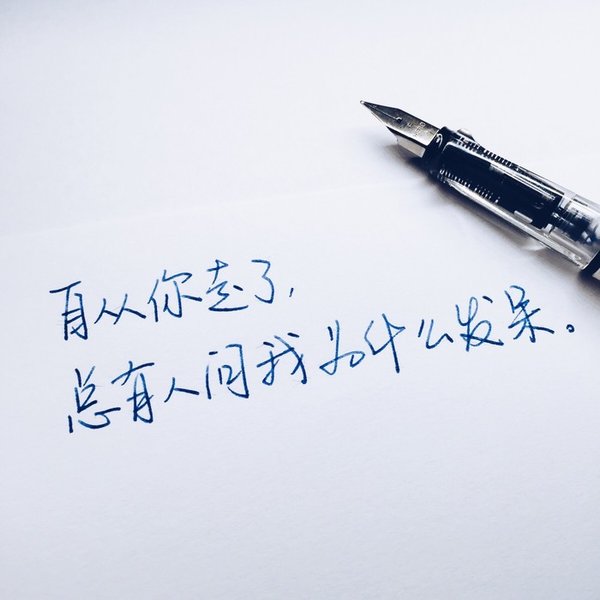 自从你走了,
总有人问我为什么发呆。